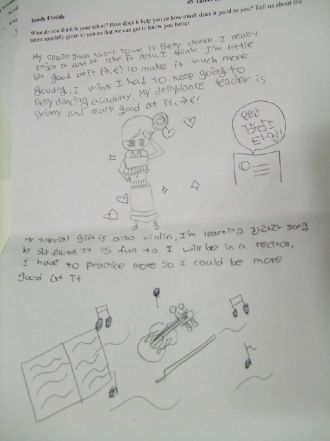 Ready Freddy
What do you think is your talent? How does it help you or how much does it good to you? Tell us about the
talent specially given to you so that we can get to know you better.
My special given talent to me is Belly dance. I really
enjoy it and it like it also, I think I'm little
bit good at it so make it much more
goodly. I think I had to keep going to
belly dancing academy. My bellydance teacher is
skinny and really good at it.
오빤
강남스
타일!
My special gift is also violin. I'm learning song
by It is fun to I will be in a recital.
I have to practice more so I could be more
good at it